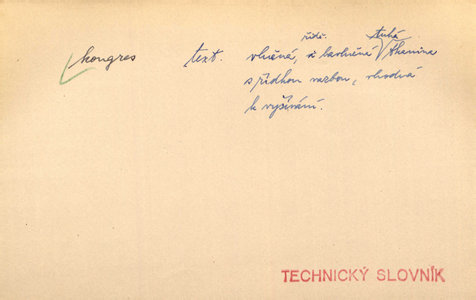 kongres text. vlněná, řidč. i bavlněná tuhá tkanina
s řídkou vazbou, vhodná
k vyšívání.
TECHNICKÝ SLOVNÍK